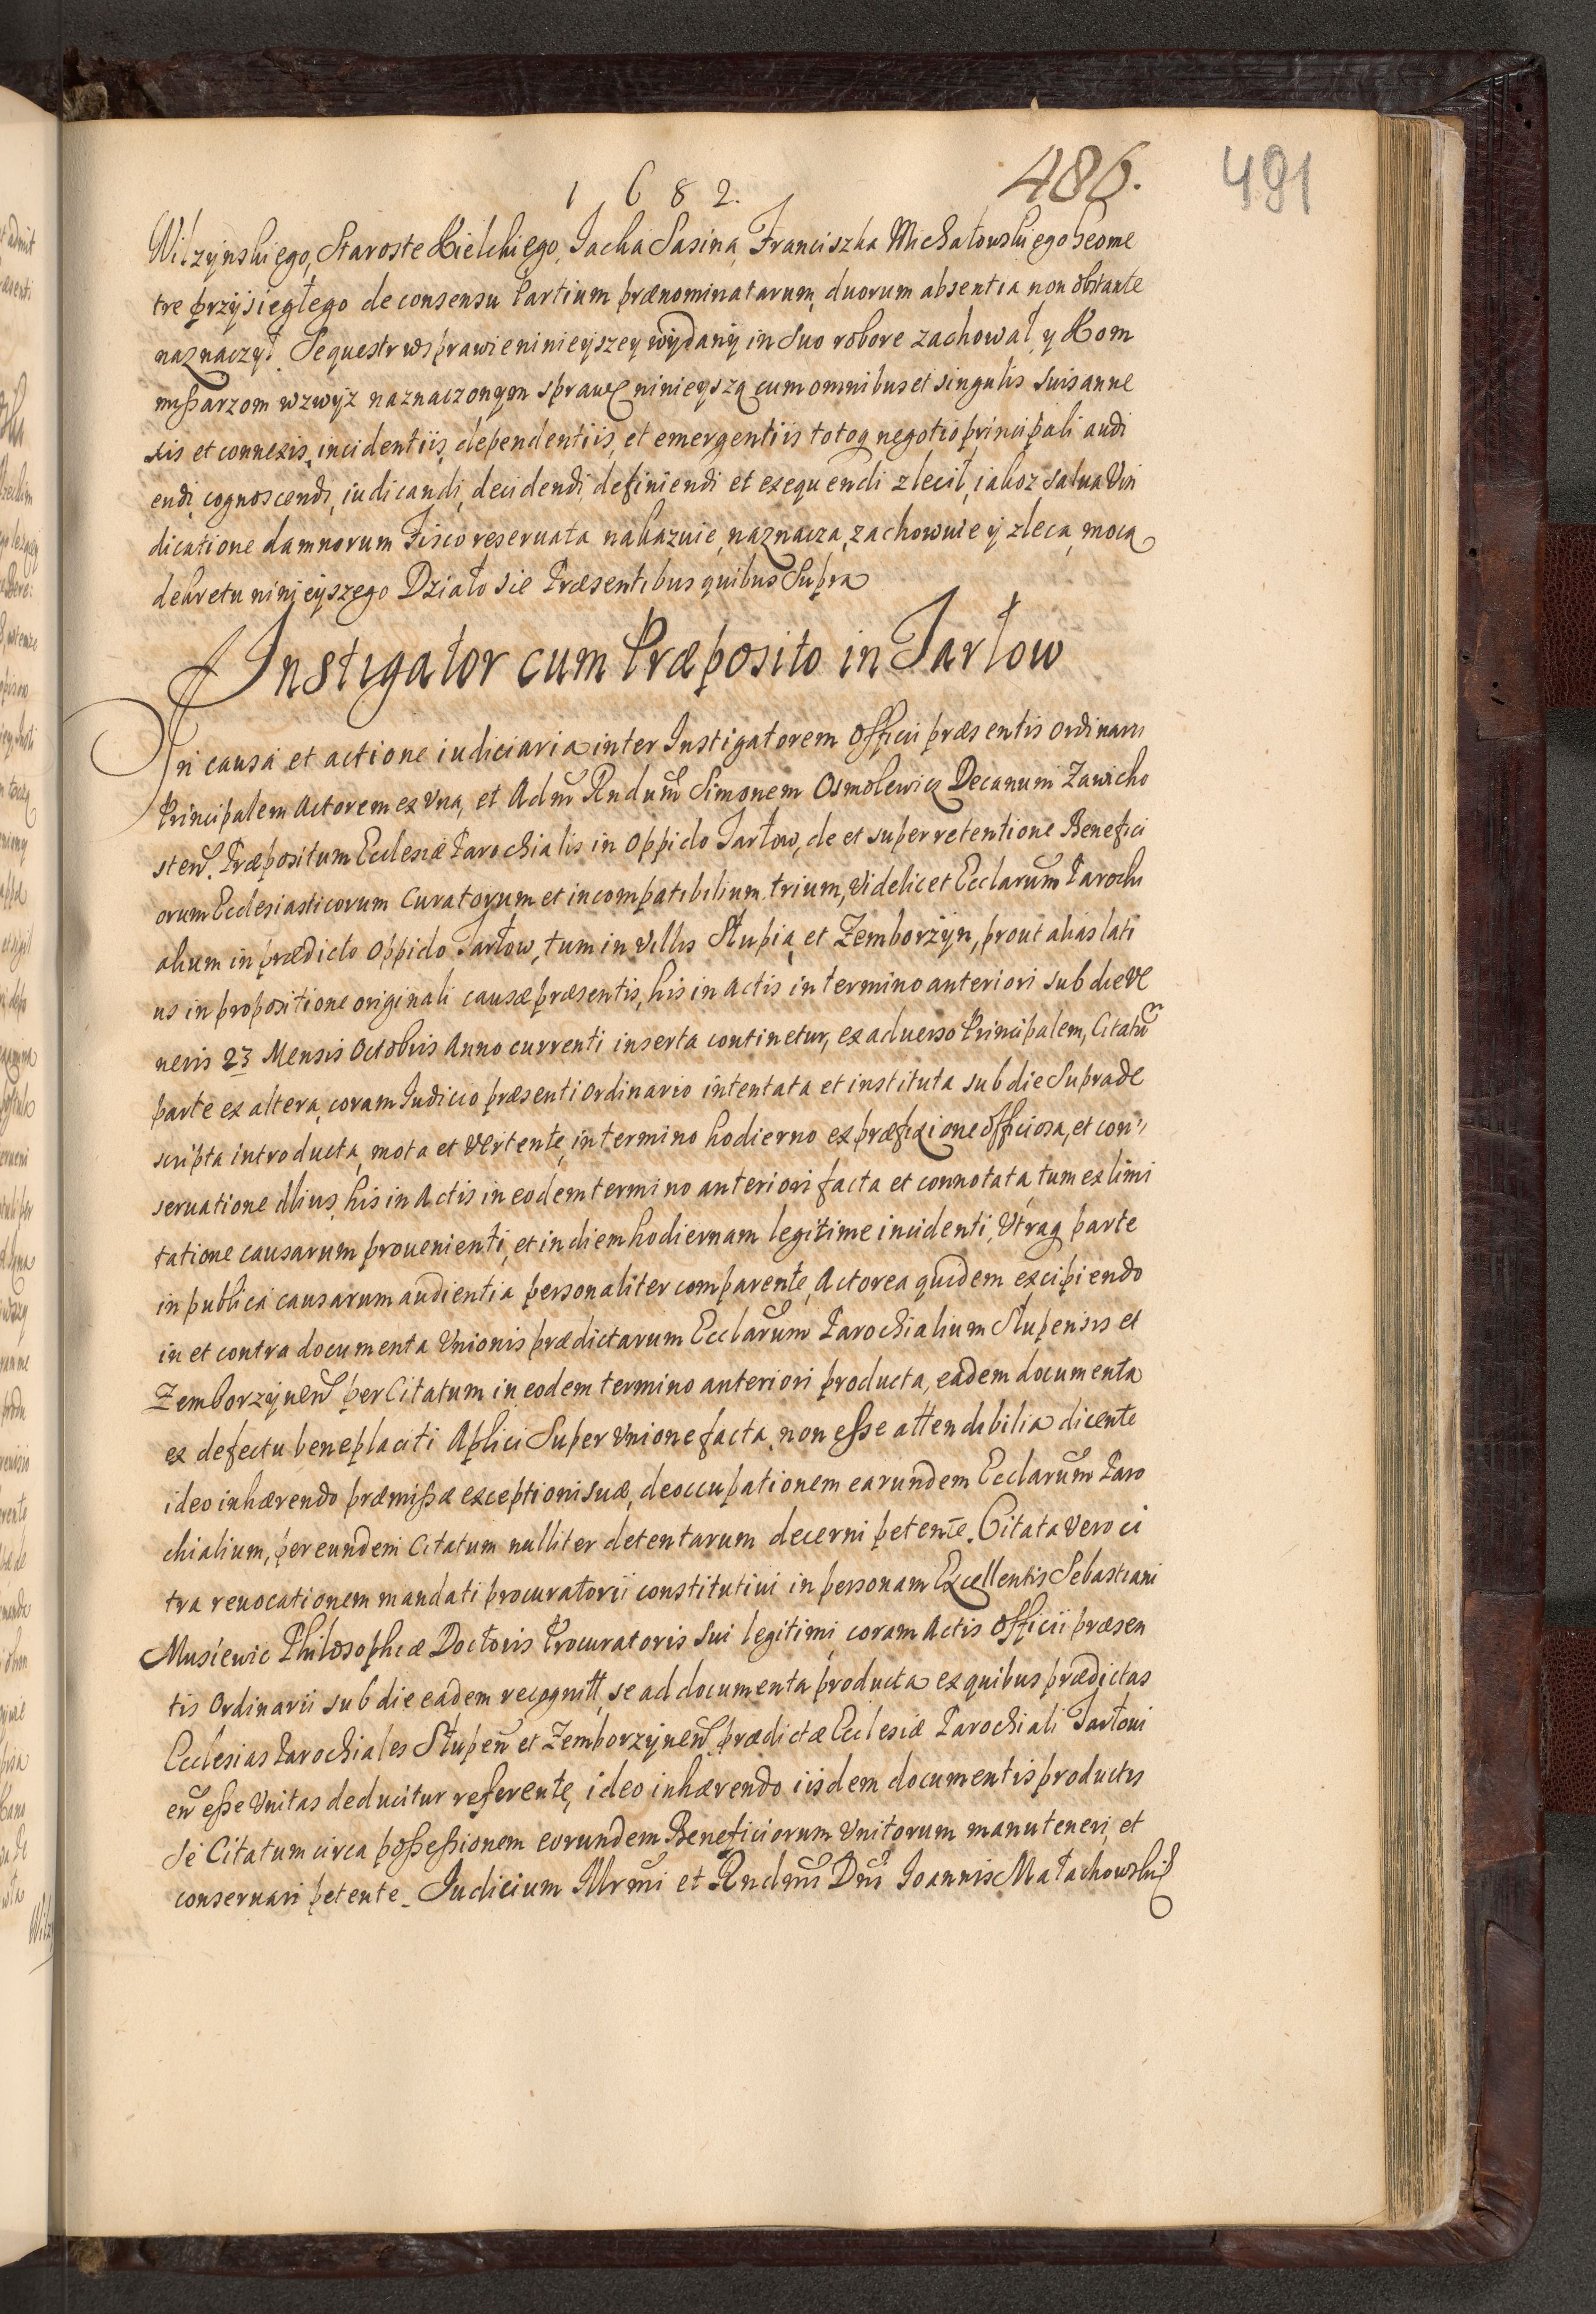 1682.
486.
491
Wilzynskiego, Staroste Kielckiego, Jacka Sasina, Franciszka Michałowskiego Geome
tre przysięgłego de consensu Partium prænominatarum, duorum absentia non obstante
naznaczył. Sequestr w sprawie ninieyszey wydany in suo robore zachował, y Kom
missarzom wzwyz naznaczonym sprawę ninieyszą cum omnibus et singulis suis anne
xis et connexis, incidentiis, dependentiis, et emergentiis totoq negotio principali audi
endi, cognoscendi, iudicandi, decidendi, definiendi et exequendi zlecił, iakoz salua Vin
dicatione damnorum Fisco reseruata nakazuie, naznacza, zachowuie y zleca, mocą
dekretu ninieyszego Działo sie Præsentibus quibus Supra
Instigator cum Præposito in Tarłow
In causa et actione iudiciaria inter Instigatorem Officii præsentis ordinarii
Principalem Actorem ex Vna, et Adm Rndum Simonem Osmolewicz Decanum Zawicho
sten. Præpositum Ecclesiæ Parochialis in Oppido Tarłow, de et super retentione Benefici
orum Ecclesiasticorum Curatorum et incompatibilium trium, Videlicet Ecclarum Parochi
alium in prædicto Oppido Tarłow, tum in Villis Słupia et Zemborzyn, prout alias lati
us in propositione originali causæ præsentis, his in Actis in termino anteriori sub die Ve
neris 23 Mensis Octobris Anno currenti inserta continetur, ex aduerso Principalem, Citatum
parte ex altera, coram Iudicio præsenti Ordinario intentata et instituta sub die Suprade
scripta introducta, mota et Vertente, in termino hodierno ex præfixione officiosa, et con
seruatione illius, his in Actis in eodem termino anteriori facta et connotata, tum ex limi
tatione causarum prouenienti, et in diem hodiernam legitime incidenti, Utraq parte
in publica causarum audientia personaliter comparente, Actorea quidem excipiendo
in et contra documenta Vnionis prædictarum Ecclarum Parochialium Słupensis et
Zemborzynen per Citatum in eodem termino anteriori producta, eadem documenta
ex defectu beneplaciti Aplici Super Vnione facta, non esse attendibilia dicente
ideo inhærendo præmissæ exceptioni suæ, deoccupationem earundem Ecclarum Paro
chialium, per eundem Citatum nulliter detentarum decerni petente. Citata vero ci
tra reuocationem mandati procuratorii constitutiui in personam Excellentis Sebastiani
Musiewic Philosophiæ Doctoris Procuratoris sui legitimi, coram Actis Officii præsen
tis Ordinarii sub die eadem recognitt, se ad documenta producta ex quibus prædictas
Ecclesias Parochiales Słupen et Zemborzynen prædictæ Ecclesiæ Parochiali Tarłoui
en esse Vnitas deducitur referente, ideo inhærendo iisdem documentis productis
se Citatum circa possessionem eorundem Beneficiorum Vnitorum manuteneri, et
conseruari petente. Iudicium Illrmi et Rndmi Dni Ioannis Małachowski